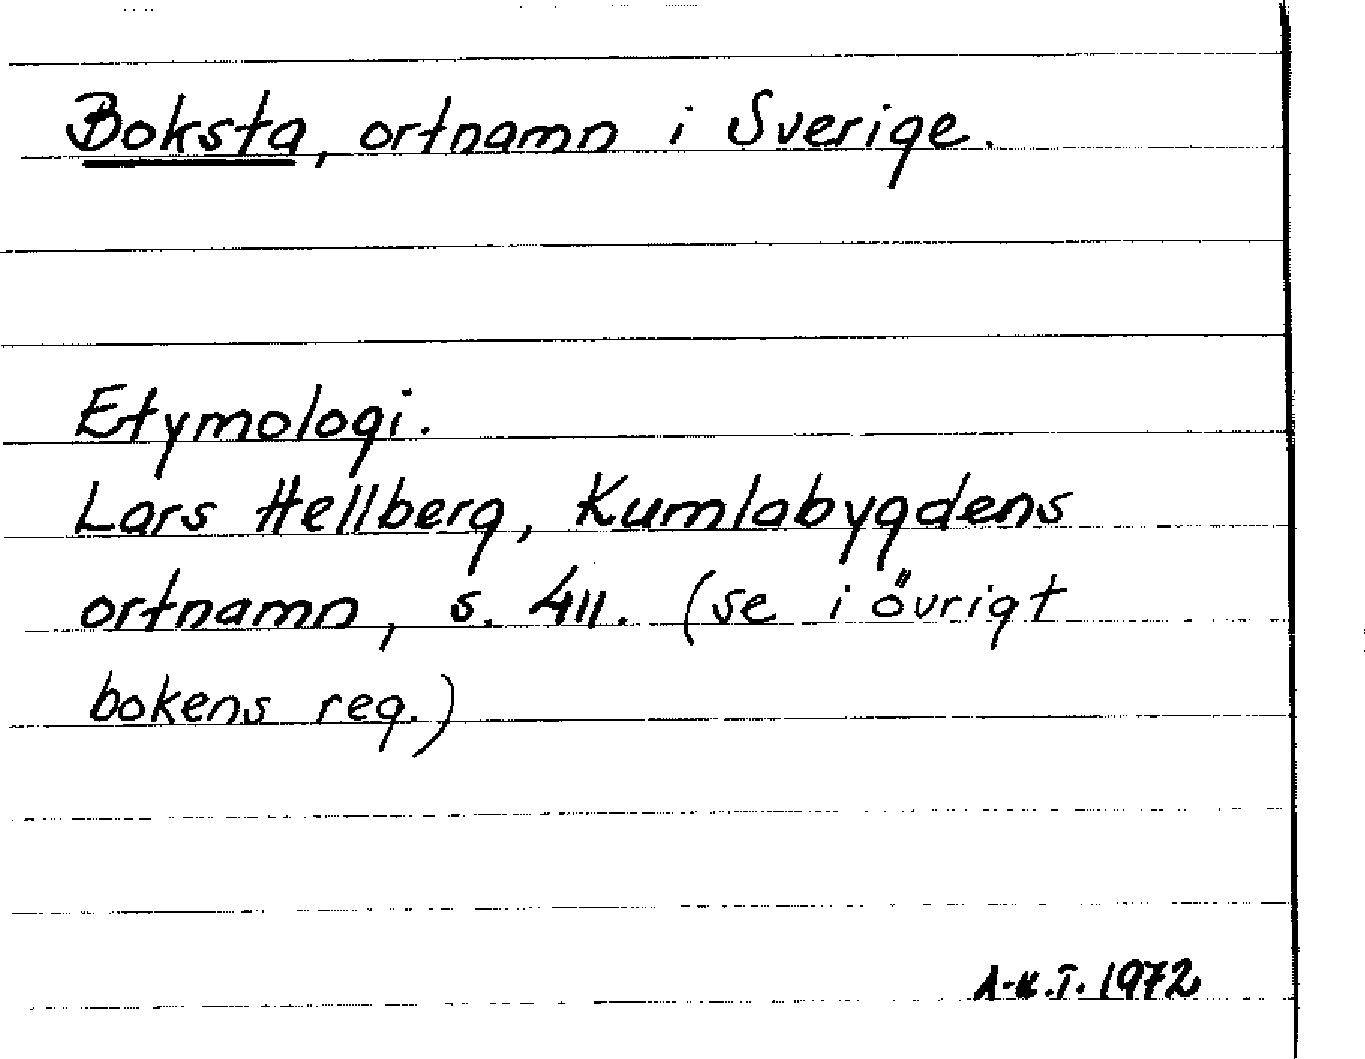 Boksta, ortnamn i Sverige.
Etymologi.
Lars Hellberg, Kumlabygdens
ortnamn, s. 411. (se i övrigt
bokens reg.)
A-K.T. 1972